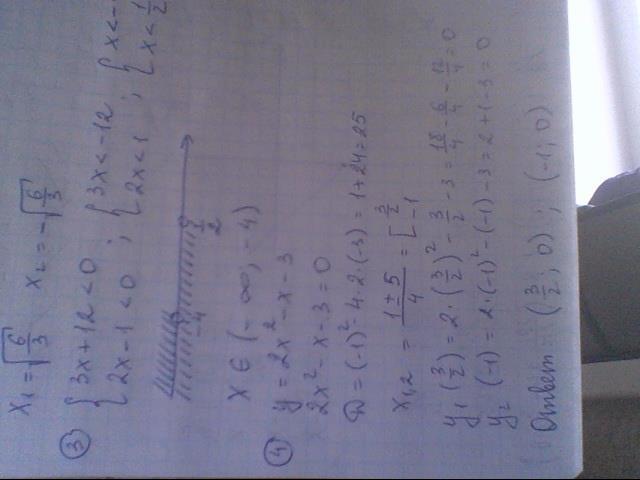 x₁ = √(6/3) x₂ = -√(6/3)
③ { 3x + 12 < 0 ; { 3x < -12 ; { x < -
{ 2x - 1 < 0 { 2x < 1 { x < 1/2
-4 1/2
x ∈ (-∞; -4)
④ y = 2x² - x - 3
2x² - x - 3 = 0
D = (-1)² - 4·2·(-3) = 1 + 24 = 25
x₁,₂ = (1 ± 5)/4 = [ 3/2
-1
y₁ (3/2) = 2·(3/2)² - 3/2 - 3 = 18/4 - 6/4 - 12/4 = 0
y₂ (-1) = 2·(-1)² - (-1) - 3 = 2 + 1 - 3 = 0
Ответ (3/2; 0) ; (-1; 0)